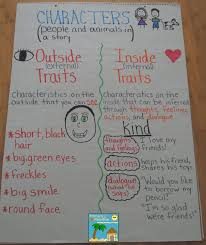 CHARACTERS
(people and animals in
a story)
Outside
(external)
Traits
Characteristics on the
outside that you can see
*short, black
hair
*big, green eyes
*freckles
*big smile
*round face
Inside
(internal)
Traits
Characteristics on the
inside that can be inferred
through thoughts, feelings,
actions, and dialogue
Kind
thoughts
and feelings
I love my
friends!
actions
helps his friend,
shares his toys
dialogue
(what he
says)
"Would you like
to borrow my
pencil?
"I'm so glad
we're friends"